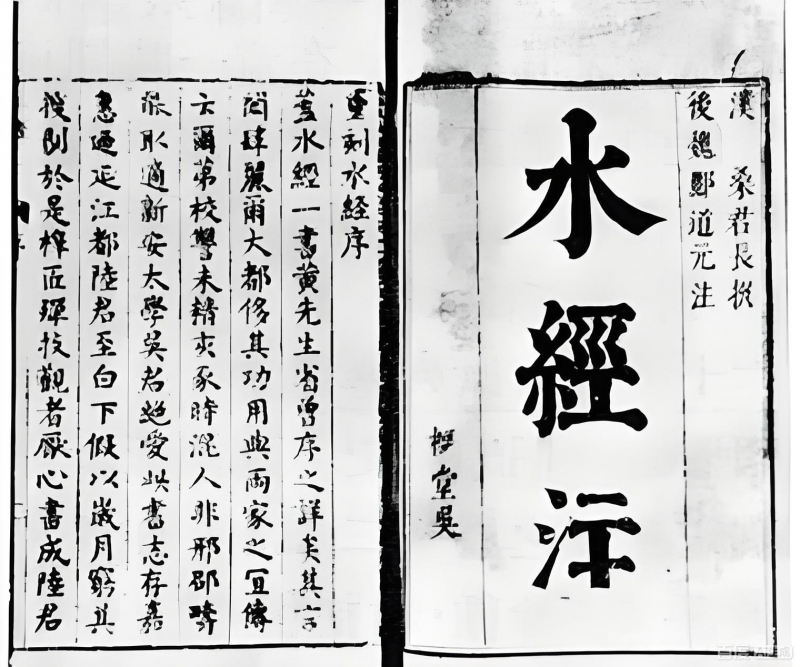 漢 桑君長撰
後魏酈道元注
水經注
堂吳
重刻水經序
蓋水經一書黃先生省曾序之詳矣其言
閎肆麗爾大都侈其功用與兩家之宜傳
云爾苐校讐未精亥豕時混人非邢邵疇
取適新安太學吳君愛此書志存嘉
惠迺延江都陸君至白下假以歲月窮其
於是梓匠殫技觀者厭心書成陸君